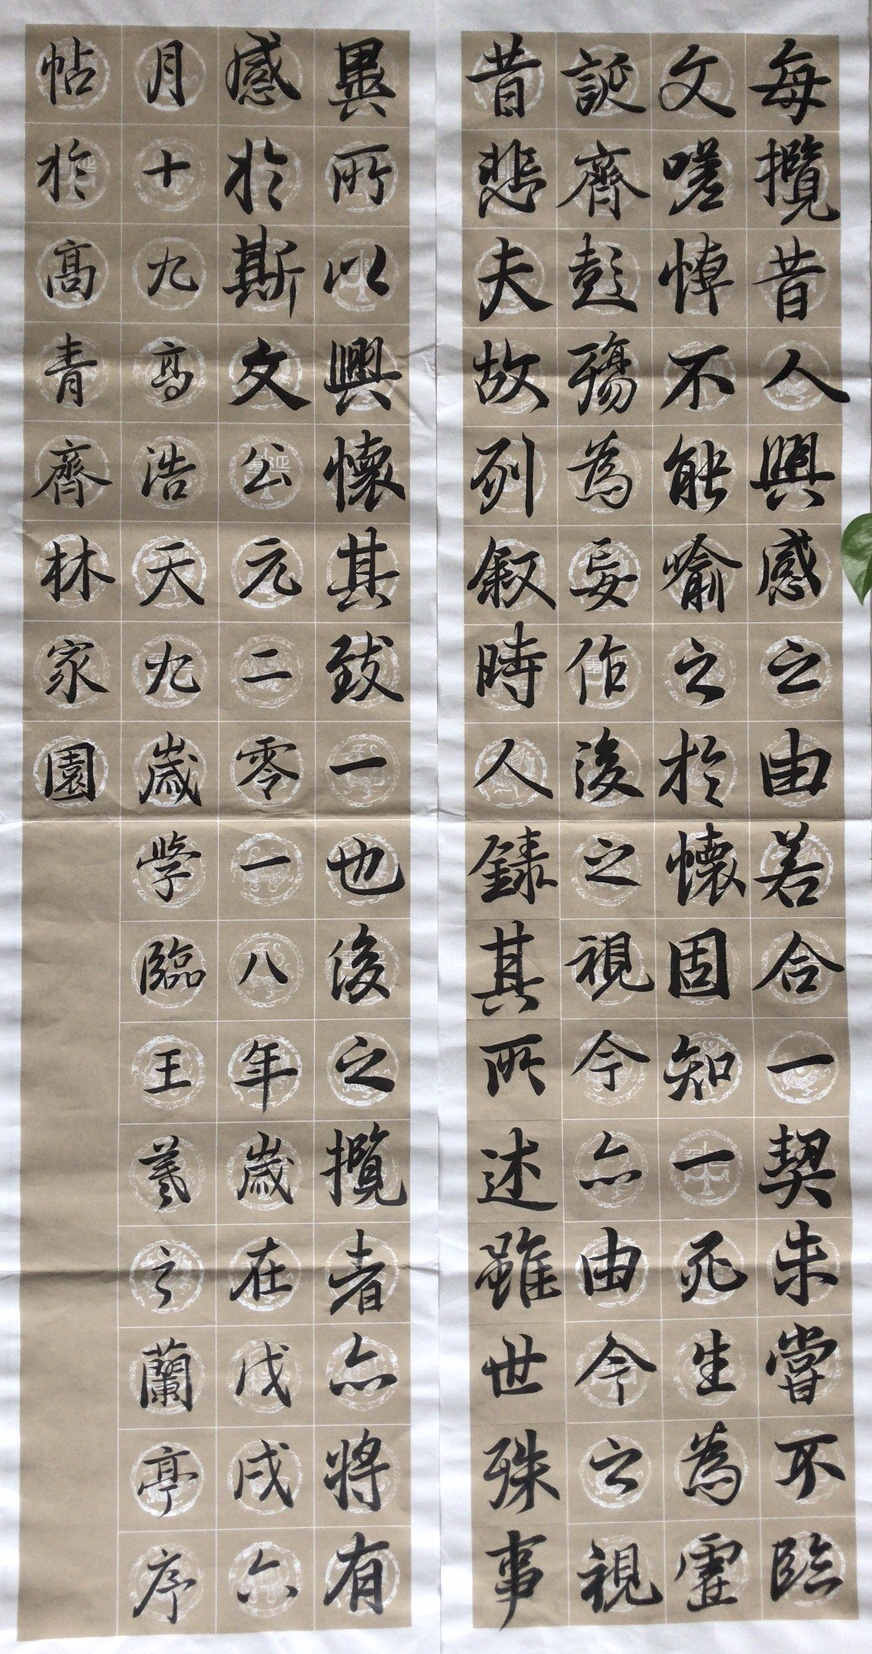 每攬昔人興感之由若合一契未嘗不臨
文嗟悼不能喻之於懷固知一死生為虛
誕齊彭殤為妄作後之視今亦由今之視
昔悲夫故列叙時人錄其所述雖世殊事
異所以興懷其致一也後之攬者亦將有
感於斯文公元二零一八年歲在戊戌六
月十九高浩天九歲學臨王羲之蘭亭序
帖於高青齊林家園